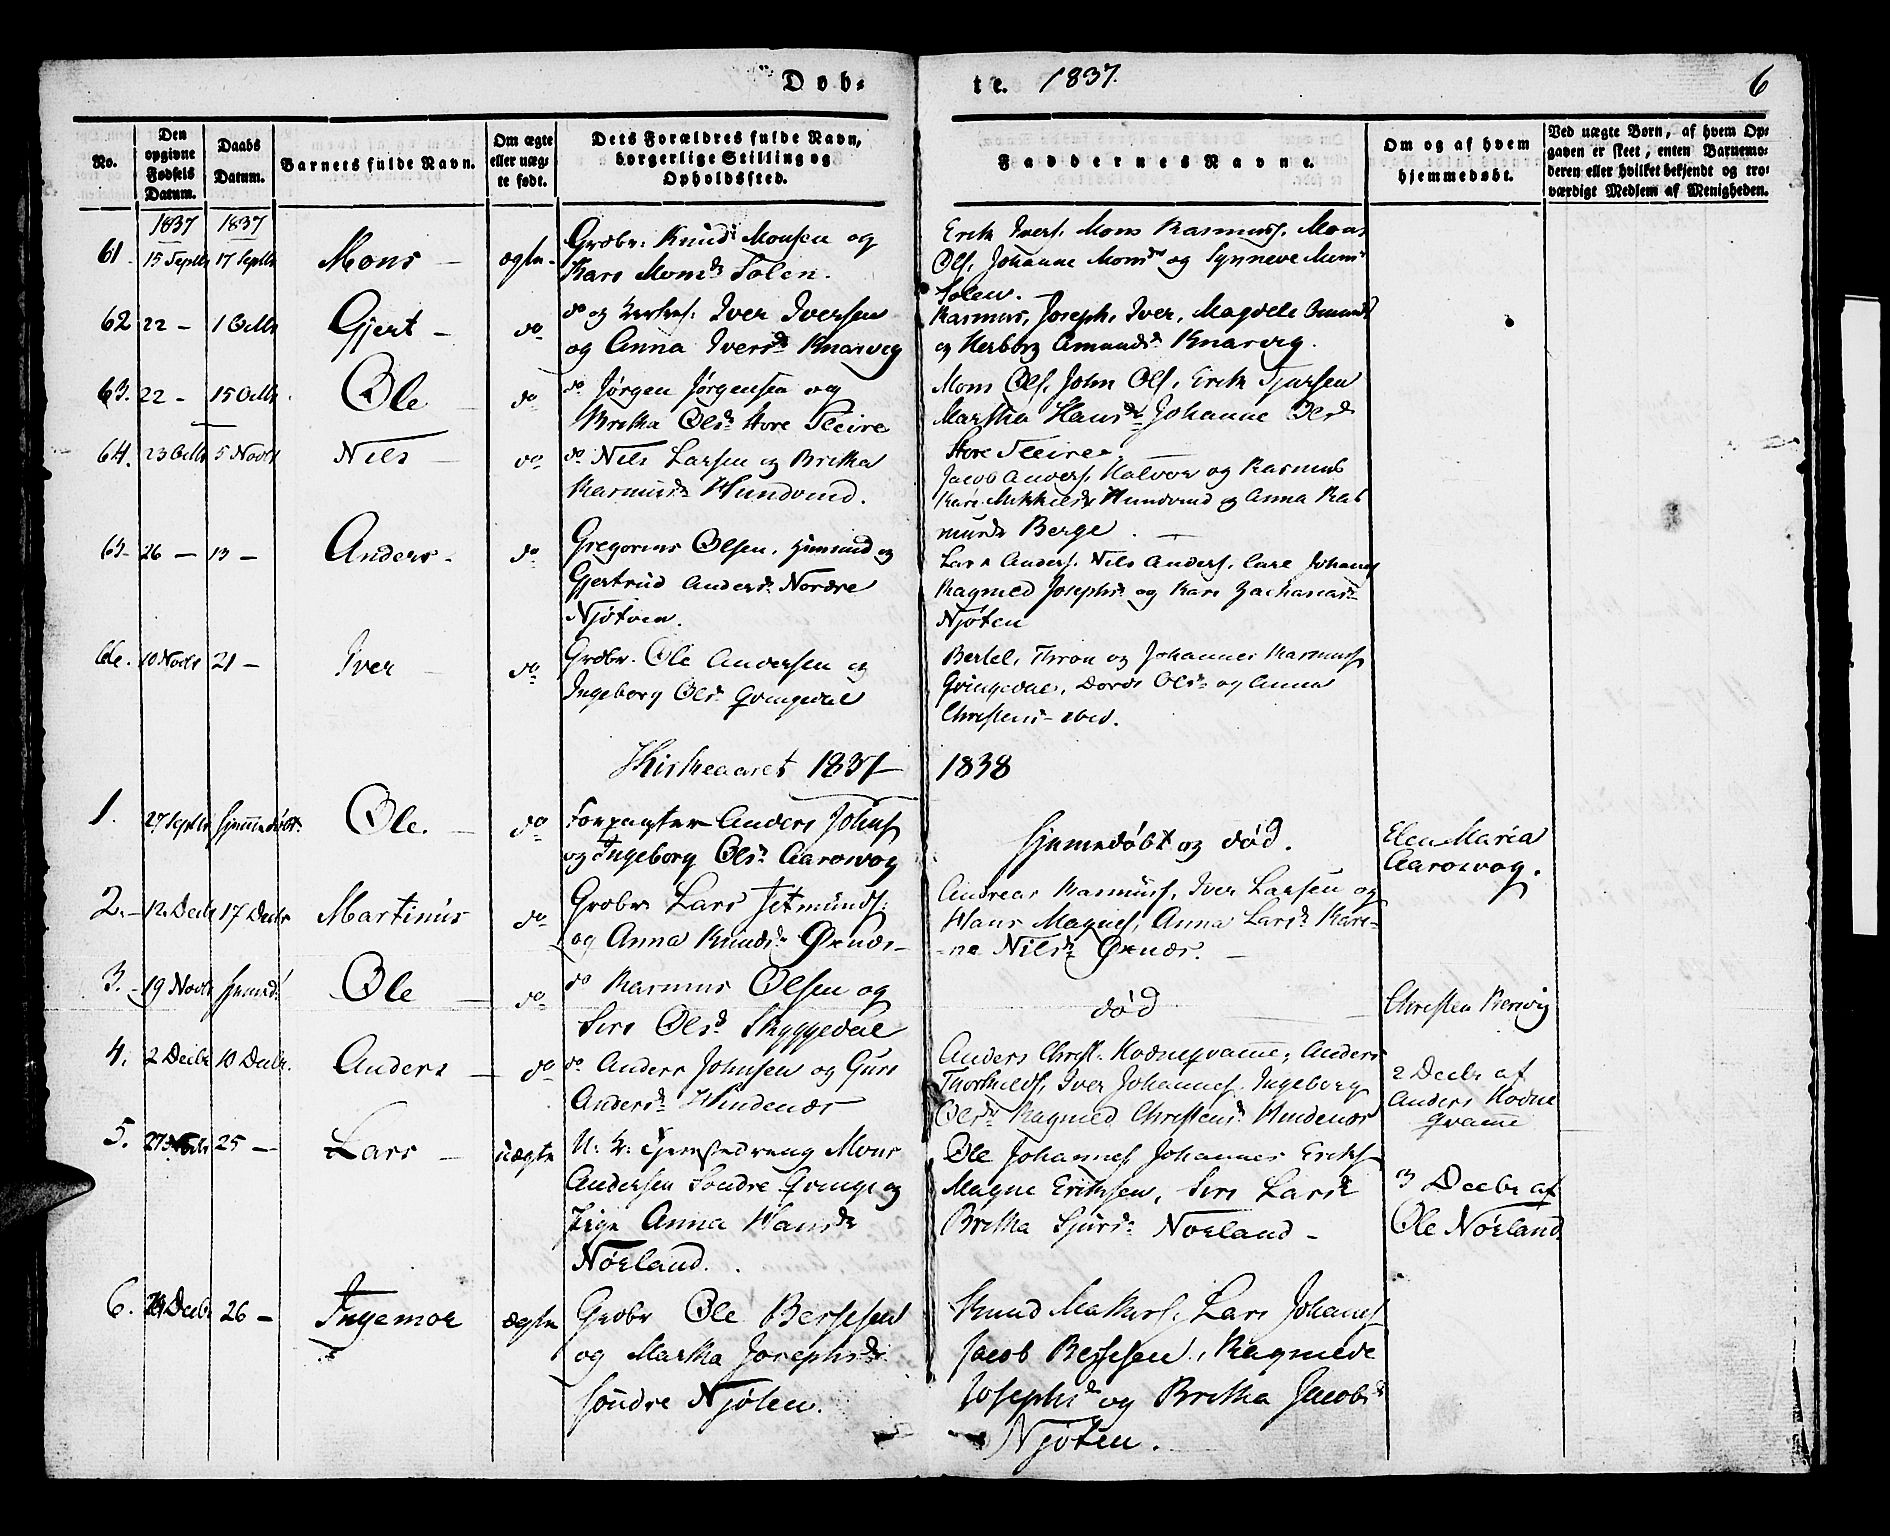 Døb-
te. 1837.
6
No.
Den opgivne Fødsels Datum.
Daabs Datum.
Barnets fulde Navn.
Om ægte eller uægte født.
Dets Forældres fulde Navn, borgerlige Stilling og Opholdssted.
Faddernes Navne.
Om og af hvem hjemmedøbt.
Ved uægte Børn, af hvem Opgaven er skeet, enten Barnemoderen eller hvilket bekjendt og troværdigt Medlem af Menigheden.
1837 1837
61. 15 Septbr 17 Septbr Mons ægte
Grdbr. Knud Monsen og
Kari Monsdr Solen.
Erik Ivers. Mons Rasmuss. Mons
Ols. Johanne Monsdr og Synneve Mons
Solen.
62 22 - 1 Octbr Gjert do
do og Iver Iversen
og Anna Iversdr Knarvig
Rasmus, Joseph, Iver, Magdele
og Herborg Amundsdr Knarvig.
63. 22 - 15 Octbr Ole do
do Jørgen Jørgensen og
Britha Olsdr Store Steire
Mons Ols. John Ols. Erik
Martha Hansdr Johanne Olsdr
Store Steire.
64. 23 Octbr 5 Novbr Nils do
do Nils Larsen og Britha
Rasmusdr Hundvind.
Jacob Anders. Halvor og Rasmus
Kari Mikkelsdr Hundvind og Anna Ras
musdr Berge.
65 26 - 13 - Anders do
Gregorius Olsen, Huusmd og
Gjertrud Andersdr Nordre
Njøten.
Lars Anders. Nils Anders. Johannes
Ragned Josephsdr og Kari Zachariasdr
Njøten
66. 10 Novbr 21 - Iver do
Grdbr. Ole Andersen og
Ingeborg Olsdr Qvingedal
Bertel, Thron og Johannes Rasmuss.
Qvingedal, Olsdr og Anna
Christens - ibid.
Kirkeaaret 1837 - 1838
1. 27 Septbr hjemmedøbt. Ole. do
Forpagter Anders Johns.
og Ingeborg Olsdr Aarsvog
hjemedøbt og død.
Elen Maria
Aarsvog.
2. 12. Decbr 17 Decbr Martinus do
Grdbr Lars Jetmunds.
og Anna Knudsdr Øxnæs
Andreas Rasmuss. Iver Larsen og
Hans Magnes. Anna Larsdr Kari-
ne Nilsdr Øxnæs.
3. 19 Novbr hjemd. Ole do
do Rasmus Olsen og
Siri Olsdr Skyggedal
død
Christen
4. 2 Decbr 10 Decbr. Anders do
do Anders Johnsen og Guri
Andersdr Hindenæs
Anders Christ. Kodneqvamme, Anders
Thorkilds. Iver Johannes. Ingeborg
Olsdr Ragned Christensdr Hindenæs
2 Decbr af
Anders Kodne
qvamme
5. 27 Novbr 25 - Lars uægte
U: K: Tjenestedreng Mons
Andersen Søndre Qvinge og
Pige Anna Hansdr
Nørland.
Ole Johannes. Johannes Eriks.
Magne Eriksen, Siri Larsdr
Britha Sjursdr Norland -
3 Decbr af
Ole Nørland.
6. Decbr 26 - Ingemor ægte
Grdbr Ole Bersesen
og Martha Josephsdr
søndre Njøten.
Knud Lars Johannes.
Jacob Bersesen, Ragnede
Josephsdr og Britha Jacobsdr
Njøten.